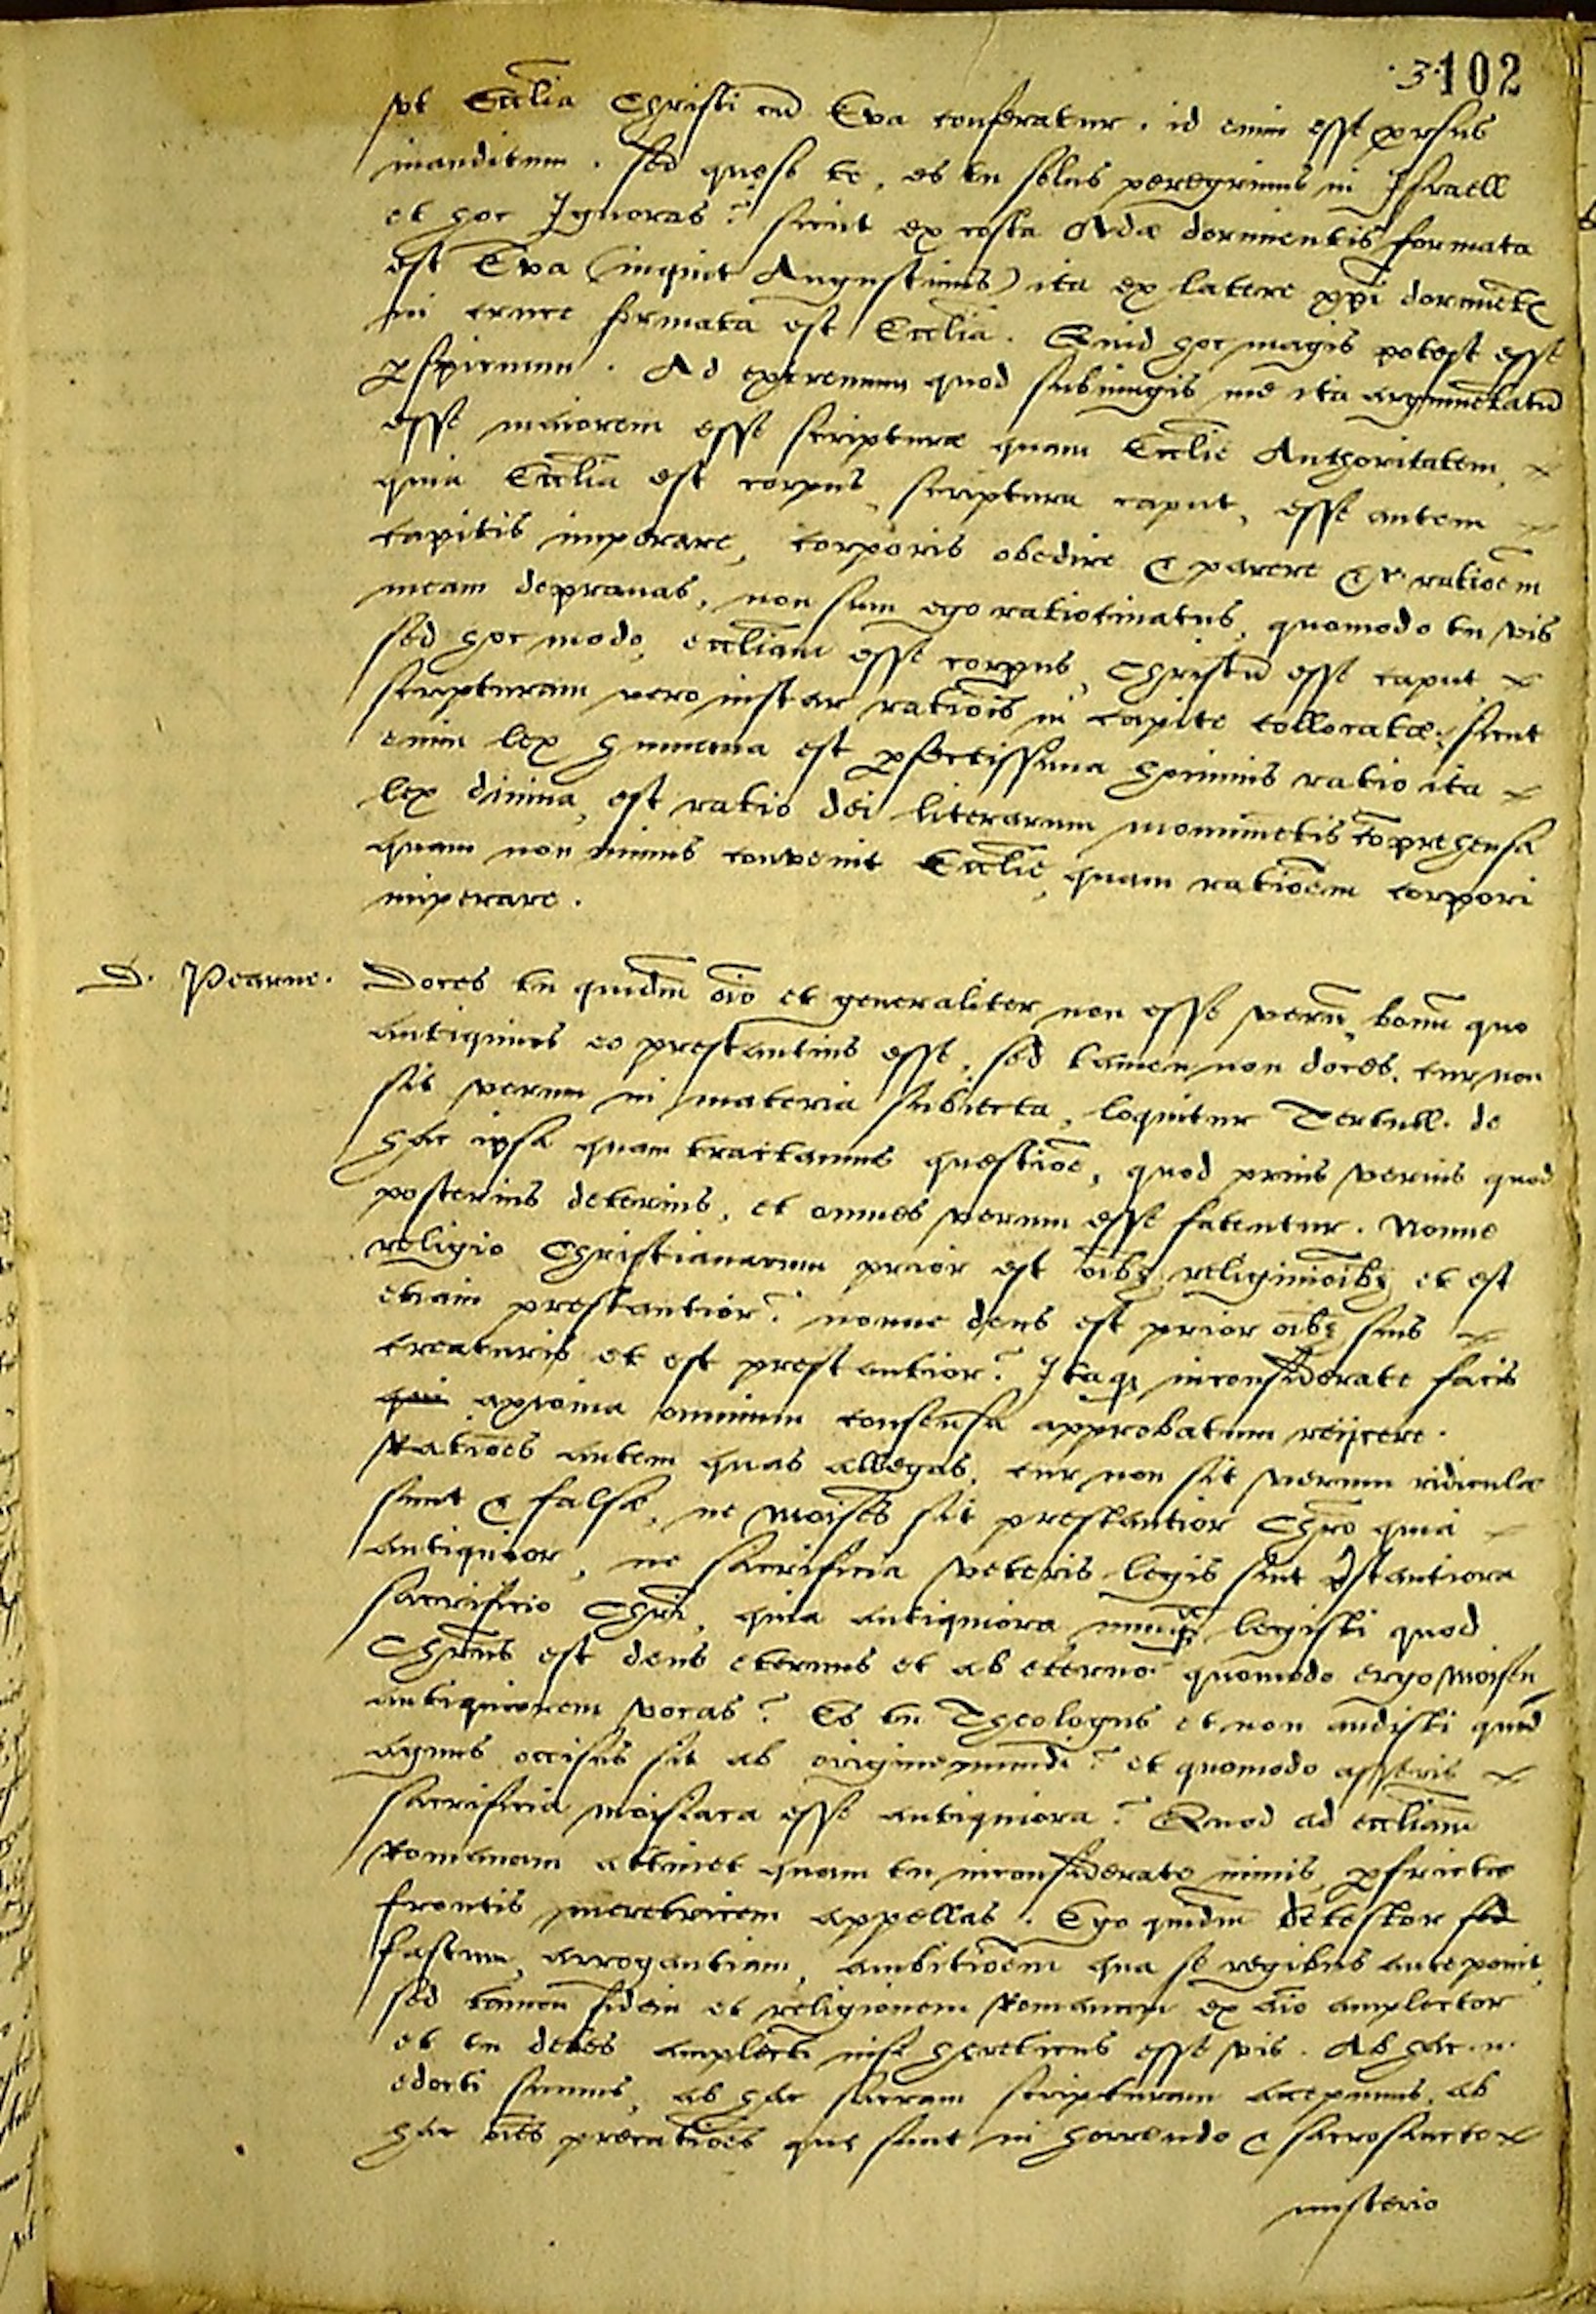 ·3·102
vt Ecclia Christi cū Eva conferatur. id enim esse prsus
inauditum. Sed quęso te, es tu solus peregrinus in Israell
et hoc Ignoras? sicut ex costa Adæ dormientis formata
est Eva (inquit Augustinus) ita ex latere xpi dormiētę
in cruce formata est Ecclia. Quid hoc magis potest esse
pspicuum. Ad extremum quod subiungis me ita argumētatū
esse maiorem esse scripturæ quam Ecclie Authoritatem,
quia Ecclia est corpus, scriptura caput, esse autem
capitis imperare, corporis obedire & parere &c. ratiōem
meam deprauas, non sum ego ratiotinatus, quomodo tu vis
sed hoc modo, eccliam esse corpus, Christū esse caput,
scripturam vero instar ratiōis in capite collocatæ; sicut
enim lex humana est pfectissima hominis ratio ita
lex diuina, est ratio dei literarum monumētis cōprehensa
quam non minus convenit Ecclie, quam ratiōem corpori
imperare.
D. Pearne. Doces tu quidm oīo et generaliter non esse verū, bonū quo
antiquius eo prestantius esse, sed tamen non doces, cur non
sit verum in materia subiecta, loquitur Tertull. de
hac ipsa quam tractamus quæstiōe, quod prius verius quod
posterius deterius, et omnes verum esse fatentur. Nonne
religio Christianarum prior est oībę religiniōibę et est
etiam prestantior? nonne deus est prior oībę suis
creaturis et est prestantior? Itaqę inconsiderate facis
qui axioma omnium consensu approbatum reijcere.
Ratiōes autem quas allegas, cur non sit verum ridiculæ
sunt & falsæ, ne Moises sit prestantior Chro quia
antiquior, ne sacrificia veteris legis sint pstantiora
sacrificio Chri, quia antiquiora, nunqā legisti quod
Chrus est deus eternus et ab eterno? quomodo ergo Moisen
antiquiorem vocas? Es tu Theologus et non audisti quod
agnus occisus sit ab origine mundi? et quomodo asseris
sacrificia moisiaca esse antiquiora? Quod ad eccliam
Romanam attinet quam tu inconsiderate nimis, pfrictæ
frontis meretricem appellas. Ego quidm detestor sed
fastum, arrogantiam, ambitiōem qua se regibus anteponit,
sed tamen fidem et religionem Romanam ex aīo amplector
et tu debes amplecti nisi hęreticus esse vis. Ab hac .n.
edocti sumus, ab hac sacram scripturam accepimus, ab
hac oēs precatiōes quę sunt in horrendo & sacrosancto
misterio